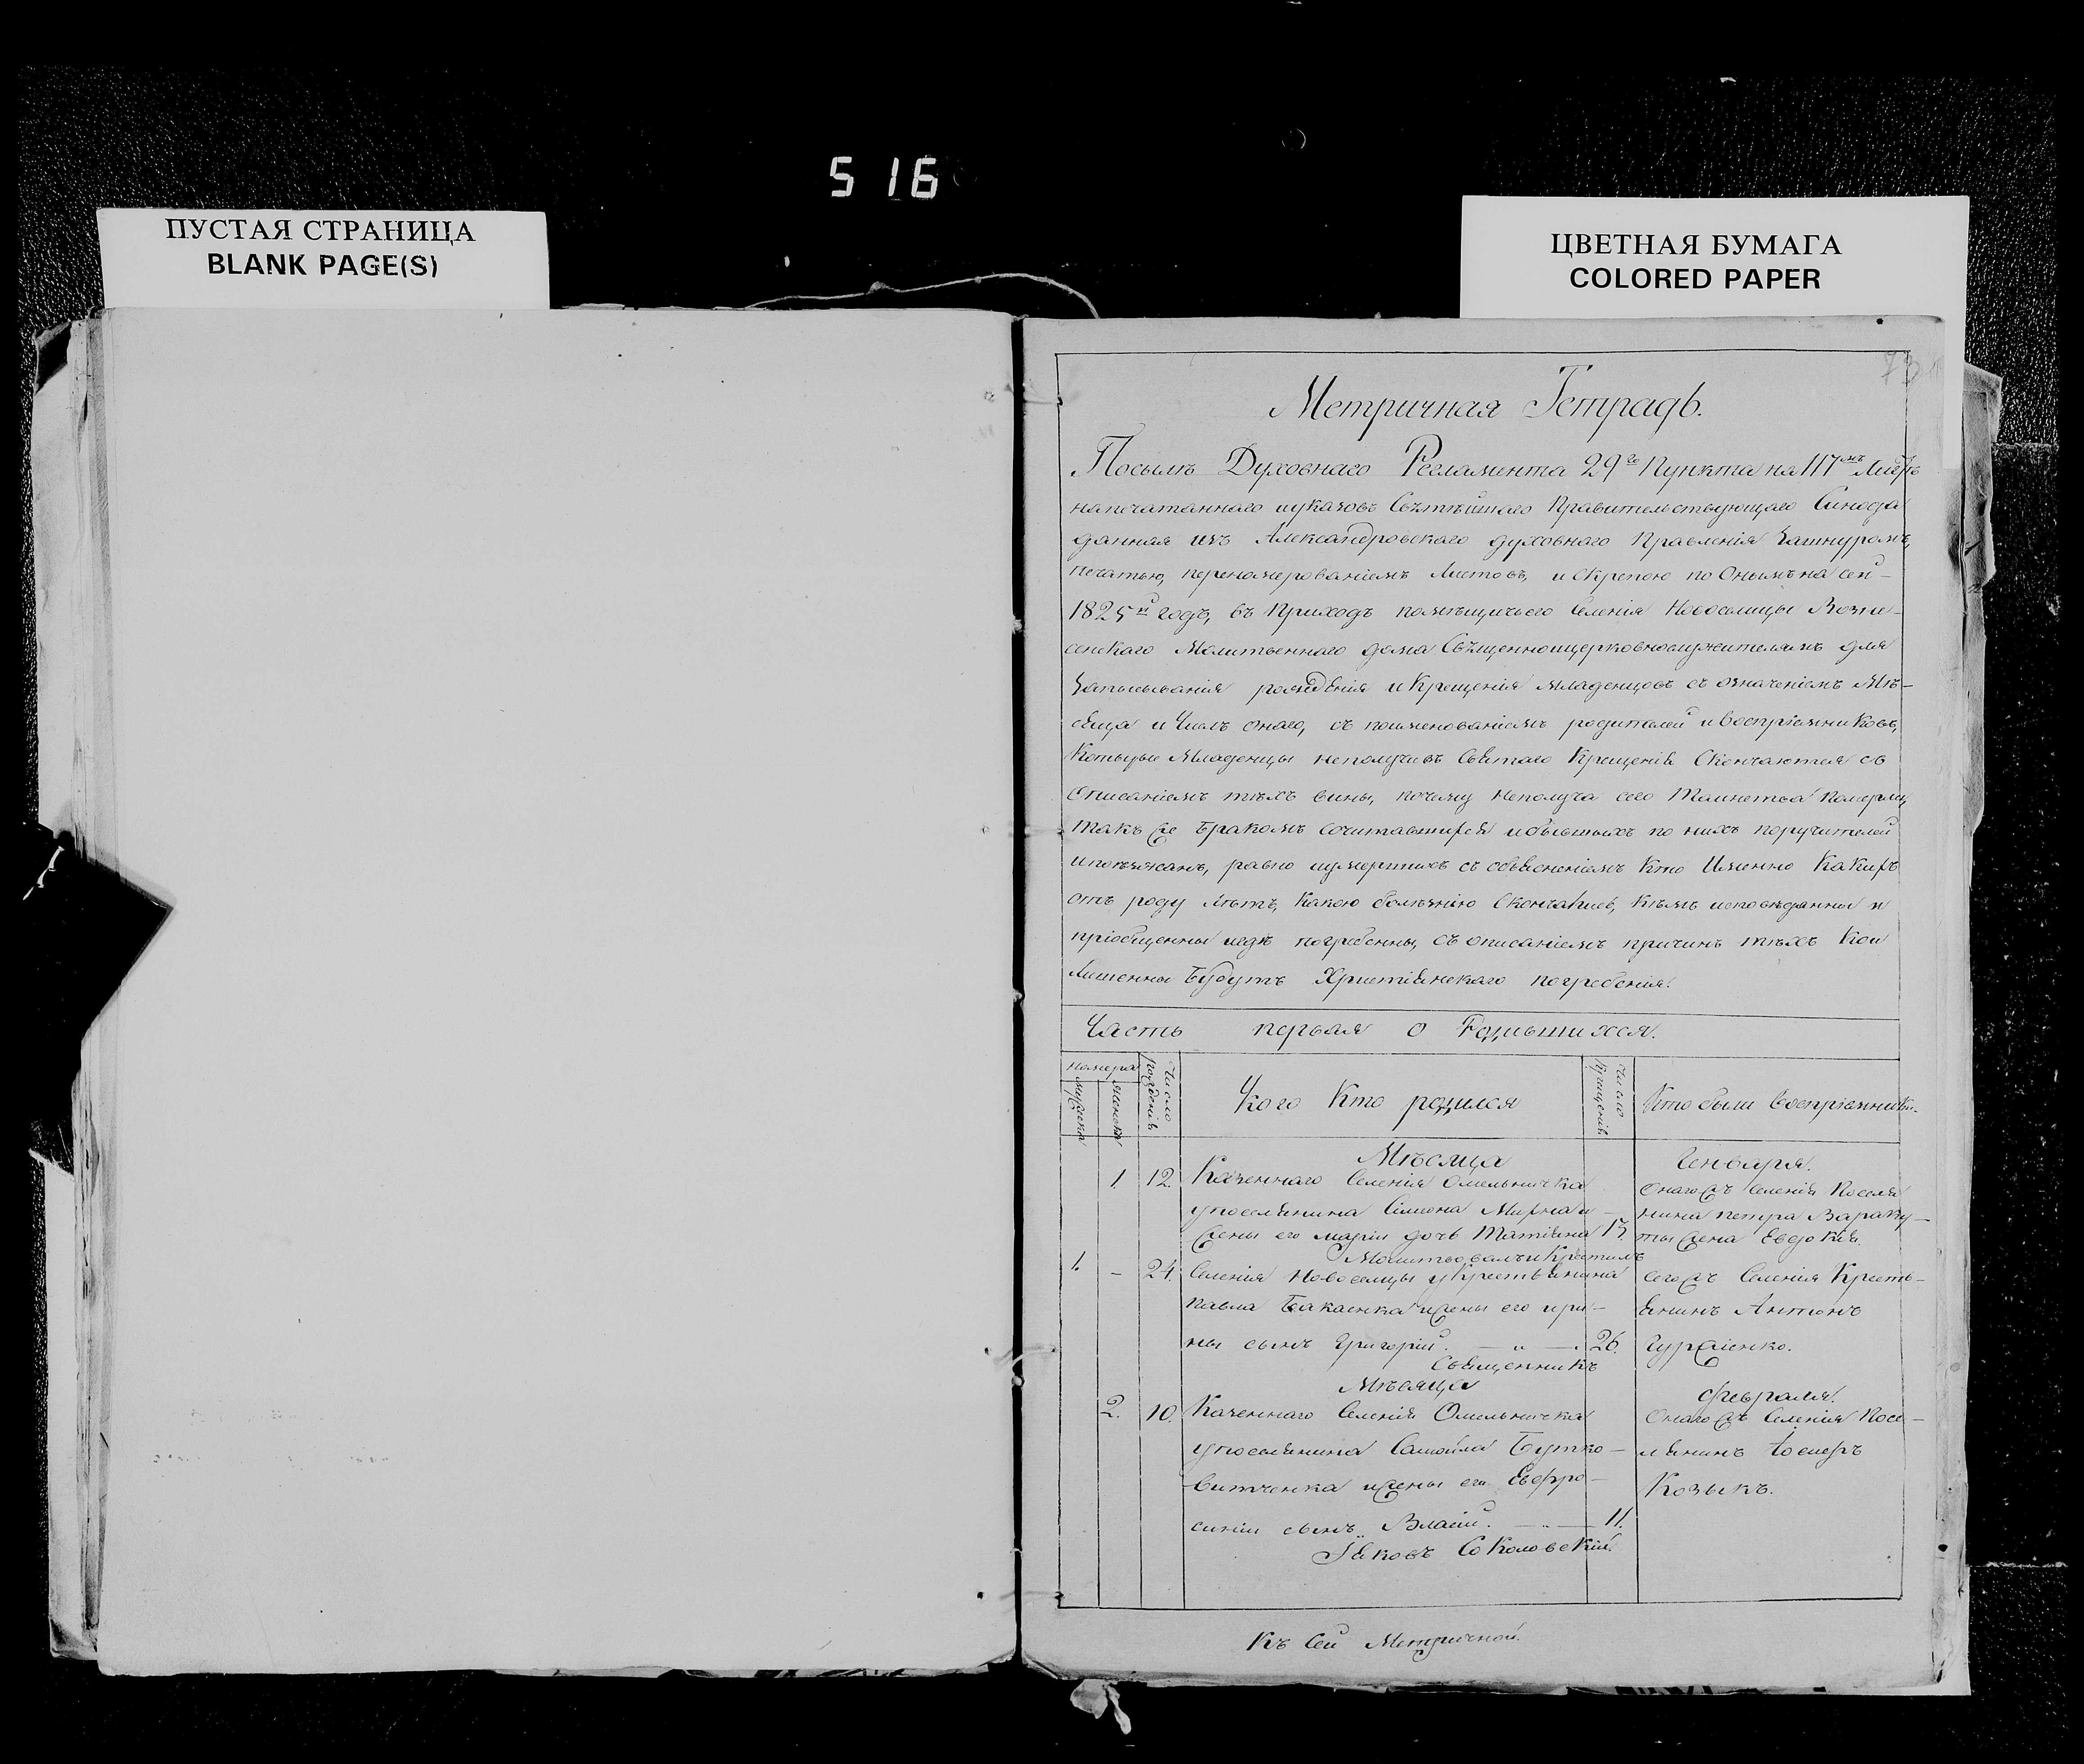 516
ПУСТАЯ СТРАНИЦА
BLANK PAGE(S)
ЦВЕТНАЯ БУМАГА
COLORED PAPER
73
Метричная Тетрадь.
Посылѣ Духовнаго Регламента 29го Пункта на 117мъ Листѣ
напечатаннаго иуказовъ Свѣтѣйшаго Правительствующаго Синода
данная изъ Александровскаго духовнаго Правленія Зашнуромъ,
печатью, переномерованіемъ Листовъ, и скрепою по Онымъ на сей
1825й годъ, въ Приходъ помѣщичьего Селенія Новоселицы Возне-
сенскаго Молитвеннаго дома Священноцерковнослужителямъ для
Записыванія рожденія и Крещенія Младенцовъ съ означеніемъ Мѣ-
сяца и Числъ онаго, съ поименованіемъ родителей и воспріемниковъ,
Которые Младенцы неполучивъ Святаго Крещенія Скончаются съ
Описаніемъ тѣхъ вины, почему Неполуча сего Таинства Померли,
такъ же Бракомъ сочитавшихся ибывшихъ по нихъ поручителей
ипоѣзжанъ, равно иумершихъ съ объясненіемъ Кто Именно Какихъ
отъ роду лѣтъ, Какою болѣзнію Скончались, Кѣмъ исповѣданны и
пріобщенны игдѣ погребенны, съ описаніемъ причинъ тѣхъ Кои
Лишенны Будутъ Христіянскаго погребенія.
Часть первая о Родившихся.
номера
мужска
женска
Число рожденія
Укого Кто родился
Число Крещенія
Кто были Воспріемники.
Мѣсяца Генваря.
1. 12. Казеннаго Селенія Омельничка
упоселянина Симіона Мирна и
жены его маріи дочь Татіяна 13.
Онагожъ Селенія Поселя
нина петра Вараву-
ты жена Евдокія.
Молитвовалъ и Крестилъ
1. - 24. Селенія Новоселицы у Крестьянина
павла Бакаенка ижены его ири-
ны сынъ Григорій. — „ — 26.
сегожъ Селенія Кресть-
янинъ Антонъ
Гуржіенко.
Священникъ
Мѣсяца Февраля.
2. 10. Казеннаго Селенія Омельничка
упоселянина Самойла Бутко-
витченка ижены его Евфро-
синіи сынъ Власій. — „ — 11.
Онагожъ Селенія Посе-
лянинъ Іосифъ
Козыкъ.
Іяковъ Соколовскій.
Къ Сей Метричной.